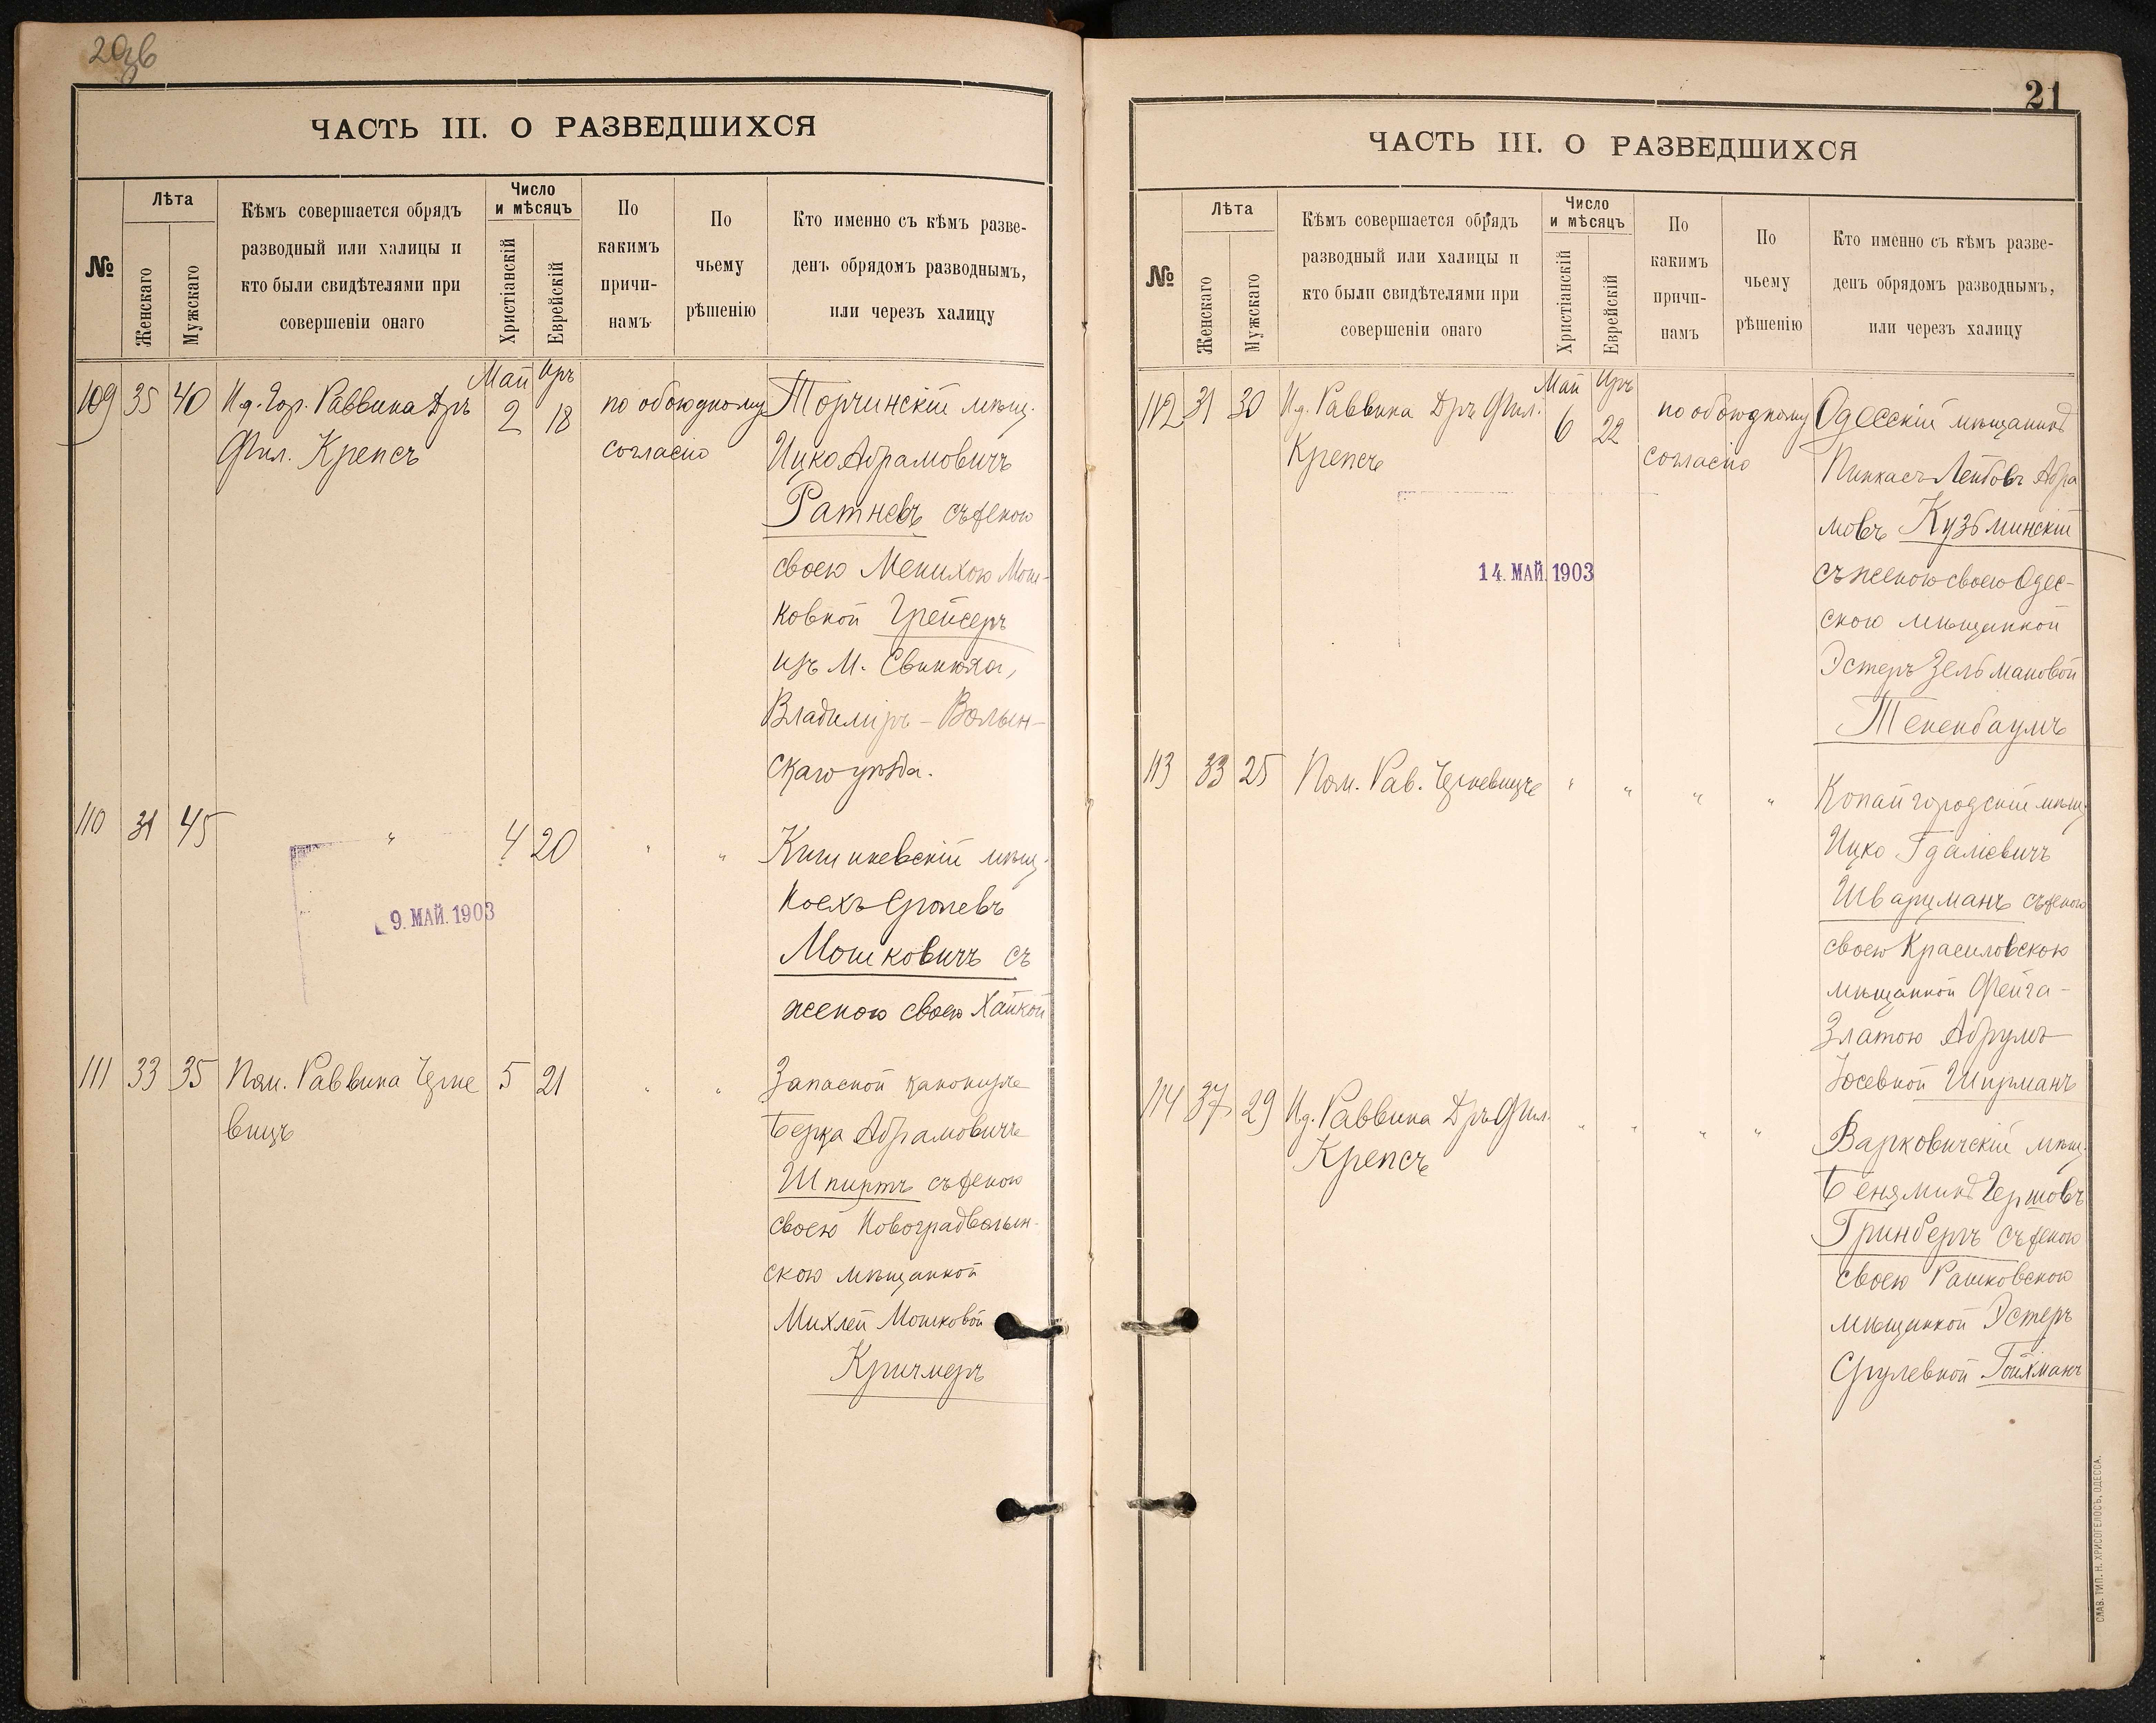 20об
ЧАСТЬ III. О РАЗВЕДШИХСЯ
№
Лѣта
Женскаго
Мужскаго
Кѣмъ совершается обрядъ
разводный или халицы и
кто были свидѣтелями при
совершеніи онаго
Число
и мѣсяцъ
Христіанскій
Еврейскій
По
какимъ
причи-
намъ
По
чьему
рѣшенію
Кто именно съ кѣмъ разве-
денъ обрядомъ разводнымъ,
или черезъ халицу
109 35 40 И.д. Гор. Раввина Д-ръ
Фил. Крепсъ
Май Иръ
2 18
по обоюдному
согласію
Торчинскій мѣщ.
Ицко Абрамовичъ
Ратневъ съ женою
своею Менихою Мош-
ковной Грейсеръ
изъ М. Свинюха,
Владиміръ-Волын-
скаго уѣзда.
110 31 45 " 4 20 " "
9. МАЙ. 1903
Кишиневскій мѣщ.
Ноехъ Сролевъ
Мошковичъ съ
женою своею Хайкой
111 33 35 Пом. Раввина Черне
вицъ
5 21 " "
Запасной канониръ
Берка Абрамовичъ
Шпиртъ съ женою
своею Новоградволын-
скою мѣщанкой
Михлей Мошковой
Кричмеръ
21
ЧАСТЬ III. О РАЗВЕДШИХСЯ
№
Лѣта
Женскаго
Мужскаго
Кѣмъ совершается обрядъ
разводный или халицы и
кто были свидѣтелями при
совершеніи онаго
Число
и мѣсяцъ
Христіанскій
Еврейскій
По
какимъ
причи-
намъ
По
чьему
рѣшенію
Кто именно съ кѣмъ разве-
денъ обрядомъ разводнымъ,
или черезъ халицу
112 31 30 И.д. Раввина Д-ръ Фил.
Крепсъ
Май Иръ
6 22
по обоюдному
согласію
14. МАЙ. 1903
Одесскій мѣщанинъ
Пинкасъ Лейбовъ Абра
мовъ Кузьминскій
съ женою своею Одес-
скою мѣщанкой
Эстеръ Зельмановой
Тененбаумъ
113 33 25 Пом. Рав. Черневицъ " " " "
Копайгородскій мѣщ.
Ицко Гдаліевичъ
Шварцманъ съ женою
своею Красиловскою
мѣщанкой Фейга-
Златою Абрумъ
Юсевной Ширманъ
114 37 29 И.д. Раввина Д-ръ Фил.
Крепсъ
" " " "
Варковичскій мѣщ.
Беняминъ Гершовъ
Гринбергъ съ женою
своею Рашковскою
мѣщанкой Эстеръ
Срулевной Гойхманъ
СЛАВ. ТИП. Н. ХРИСОГЕЛОСЪ, ОДЕССА.